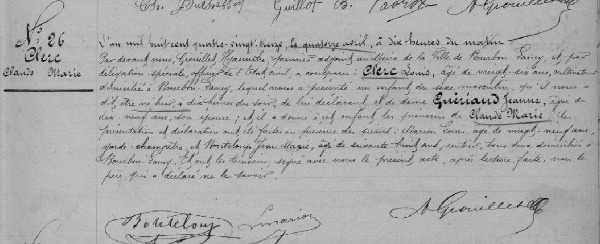 Guillot B.
A Grouillet
N° 26
Clerc
Claude Marie
L'an mil huit cent quatre-vingt treize, le quatorze avril, à dix heures du matin
Par devant nous, Grouillet, premier adjoint au Maire de la Ville de Bourbon Lancy, et par
délégation spéciale, officier de l'état civil, a comparu: Clerc Louis, âgé de vingt-six ans, cultivateur
domicilié à Bourbon-Lancy, lequel nous a présenté un enfant du sexe masculin, qu'il nous a
dit être né hier à dix heures du soir, de lui déclarant et de dame Guériaud Jeanne, âgée de
dix neuf ans, son épouse; et il a donné à cet enfant les prénoms de Claude Marie. Les
présentation et déclaration ont été faites en présence des sieurs: Marion Louis, âgé de vingt-neuf ans,
garde-champêtre, et Bonteloup Jean Marie, âgé de soixante huit ans, tous deux domiciliés à
Bourbon-Lancy. Et ont les témoins, signé avec nous le présent acte, après lecture faite, non le
père, qui a déclaré ne le savoir.
Bonteloup L. Marion A Grouillet